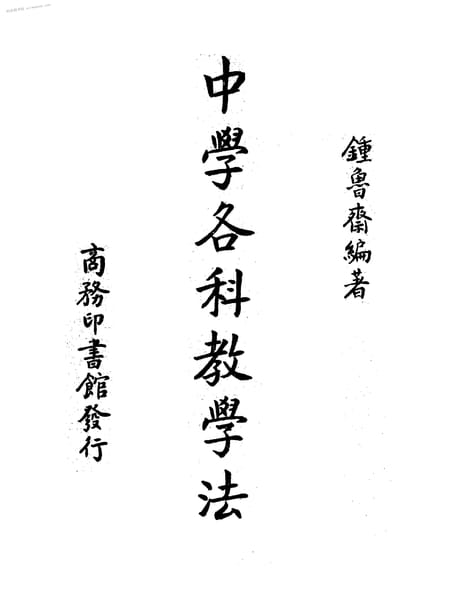 鍾魯齋編著
中學各科教學法
商務印書館發行